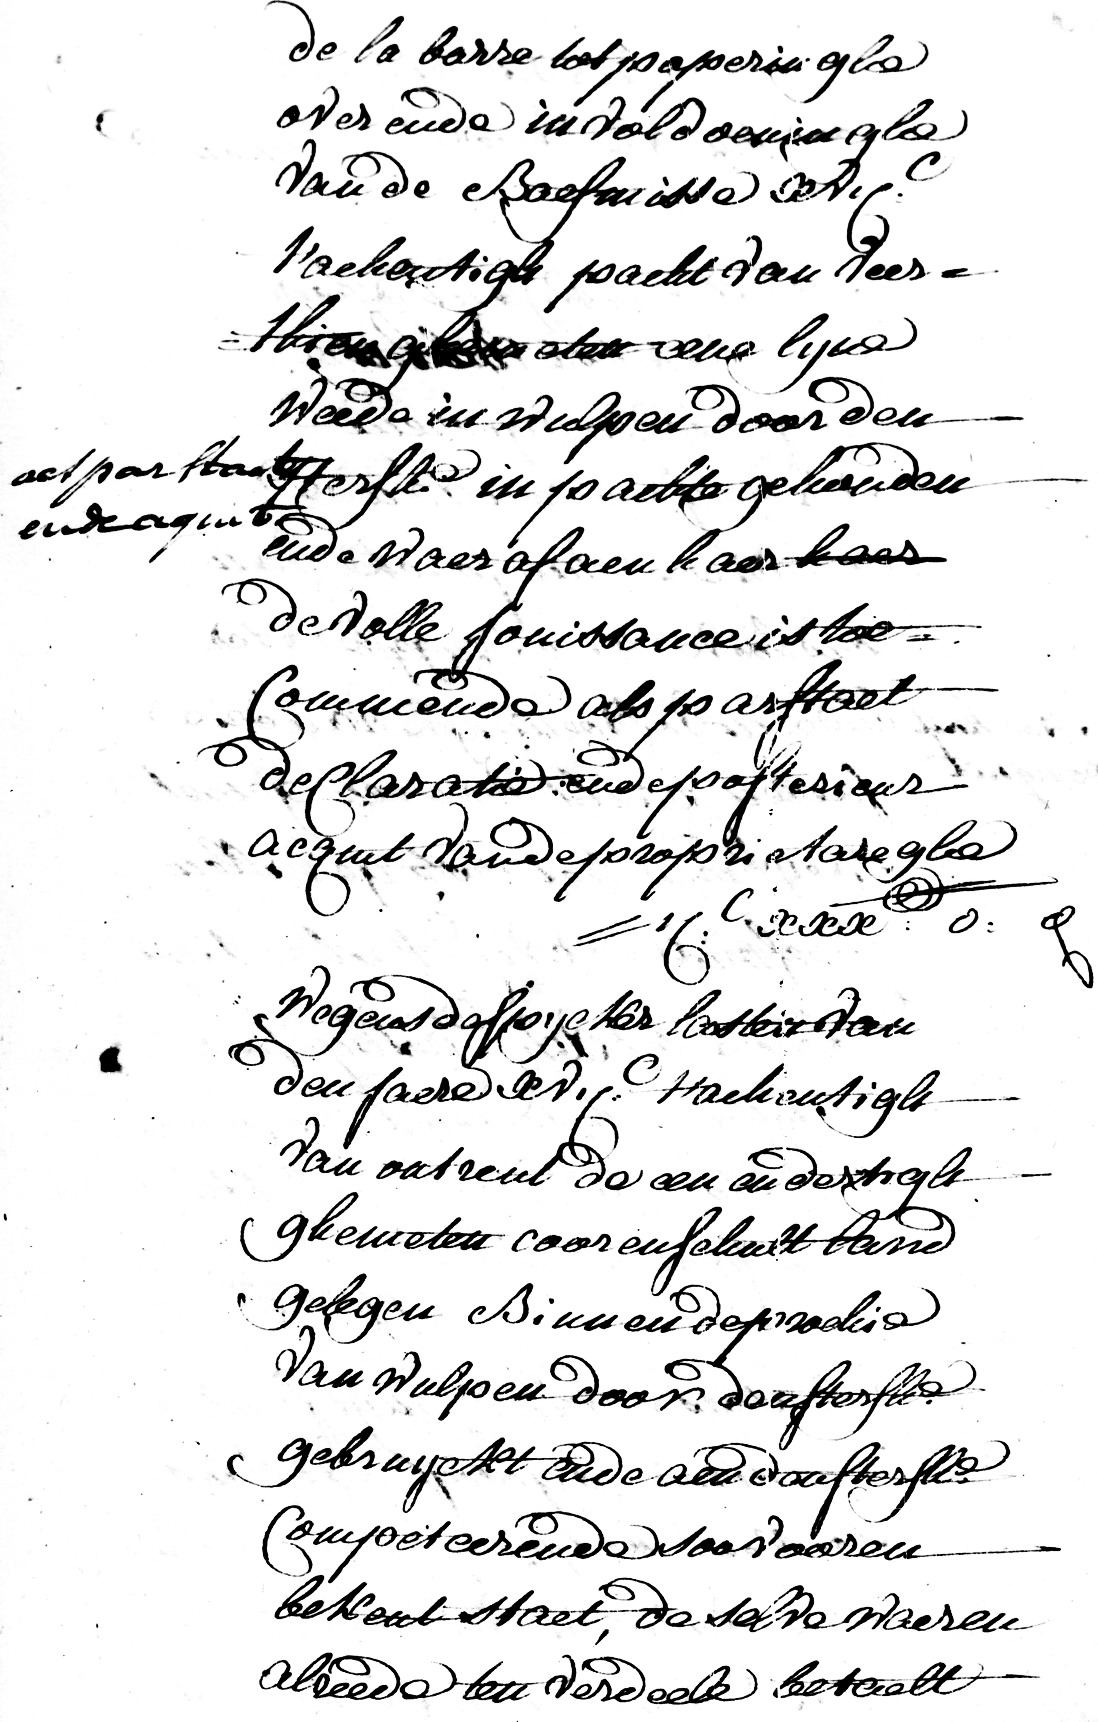 de la barre tot poperinghe
over ende in voldoeninghe
vande Baefmisse xvj.C
tachentigh pacht van veer=
=thien ghemeten eene lyne
weede in wulpen door den
act par staet
sterfh.e in pachte gehouden
ende aquit
ende waer af aen haer haer
de volle jouissance is toe=
commende als par staet
declaratie ende posterieur
acquit vande proprietareghe
= ij.C xxx lb 0: g
wegens de spycker lasten van
den jaere xvj.C tachentigh
van ontrent de een endertigh
ghemeten coorenschult land
gelegen Binnen de prochie
van wulpen door den sterfh.e
gebruyckt ende aen den sterfh.e
competeerende soo vooren
bekent staet, de selve waeren
alreede ten verdeele betaelt